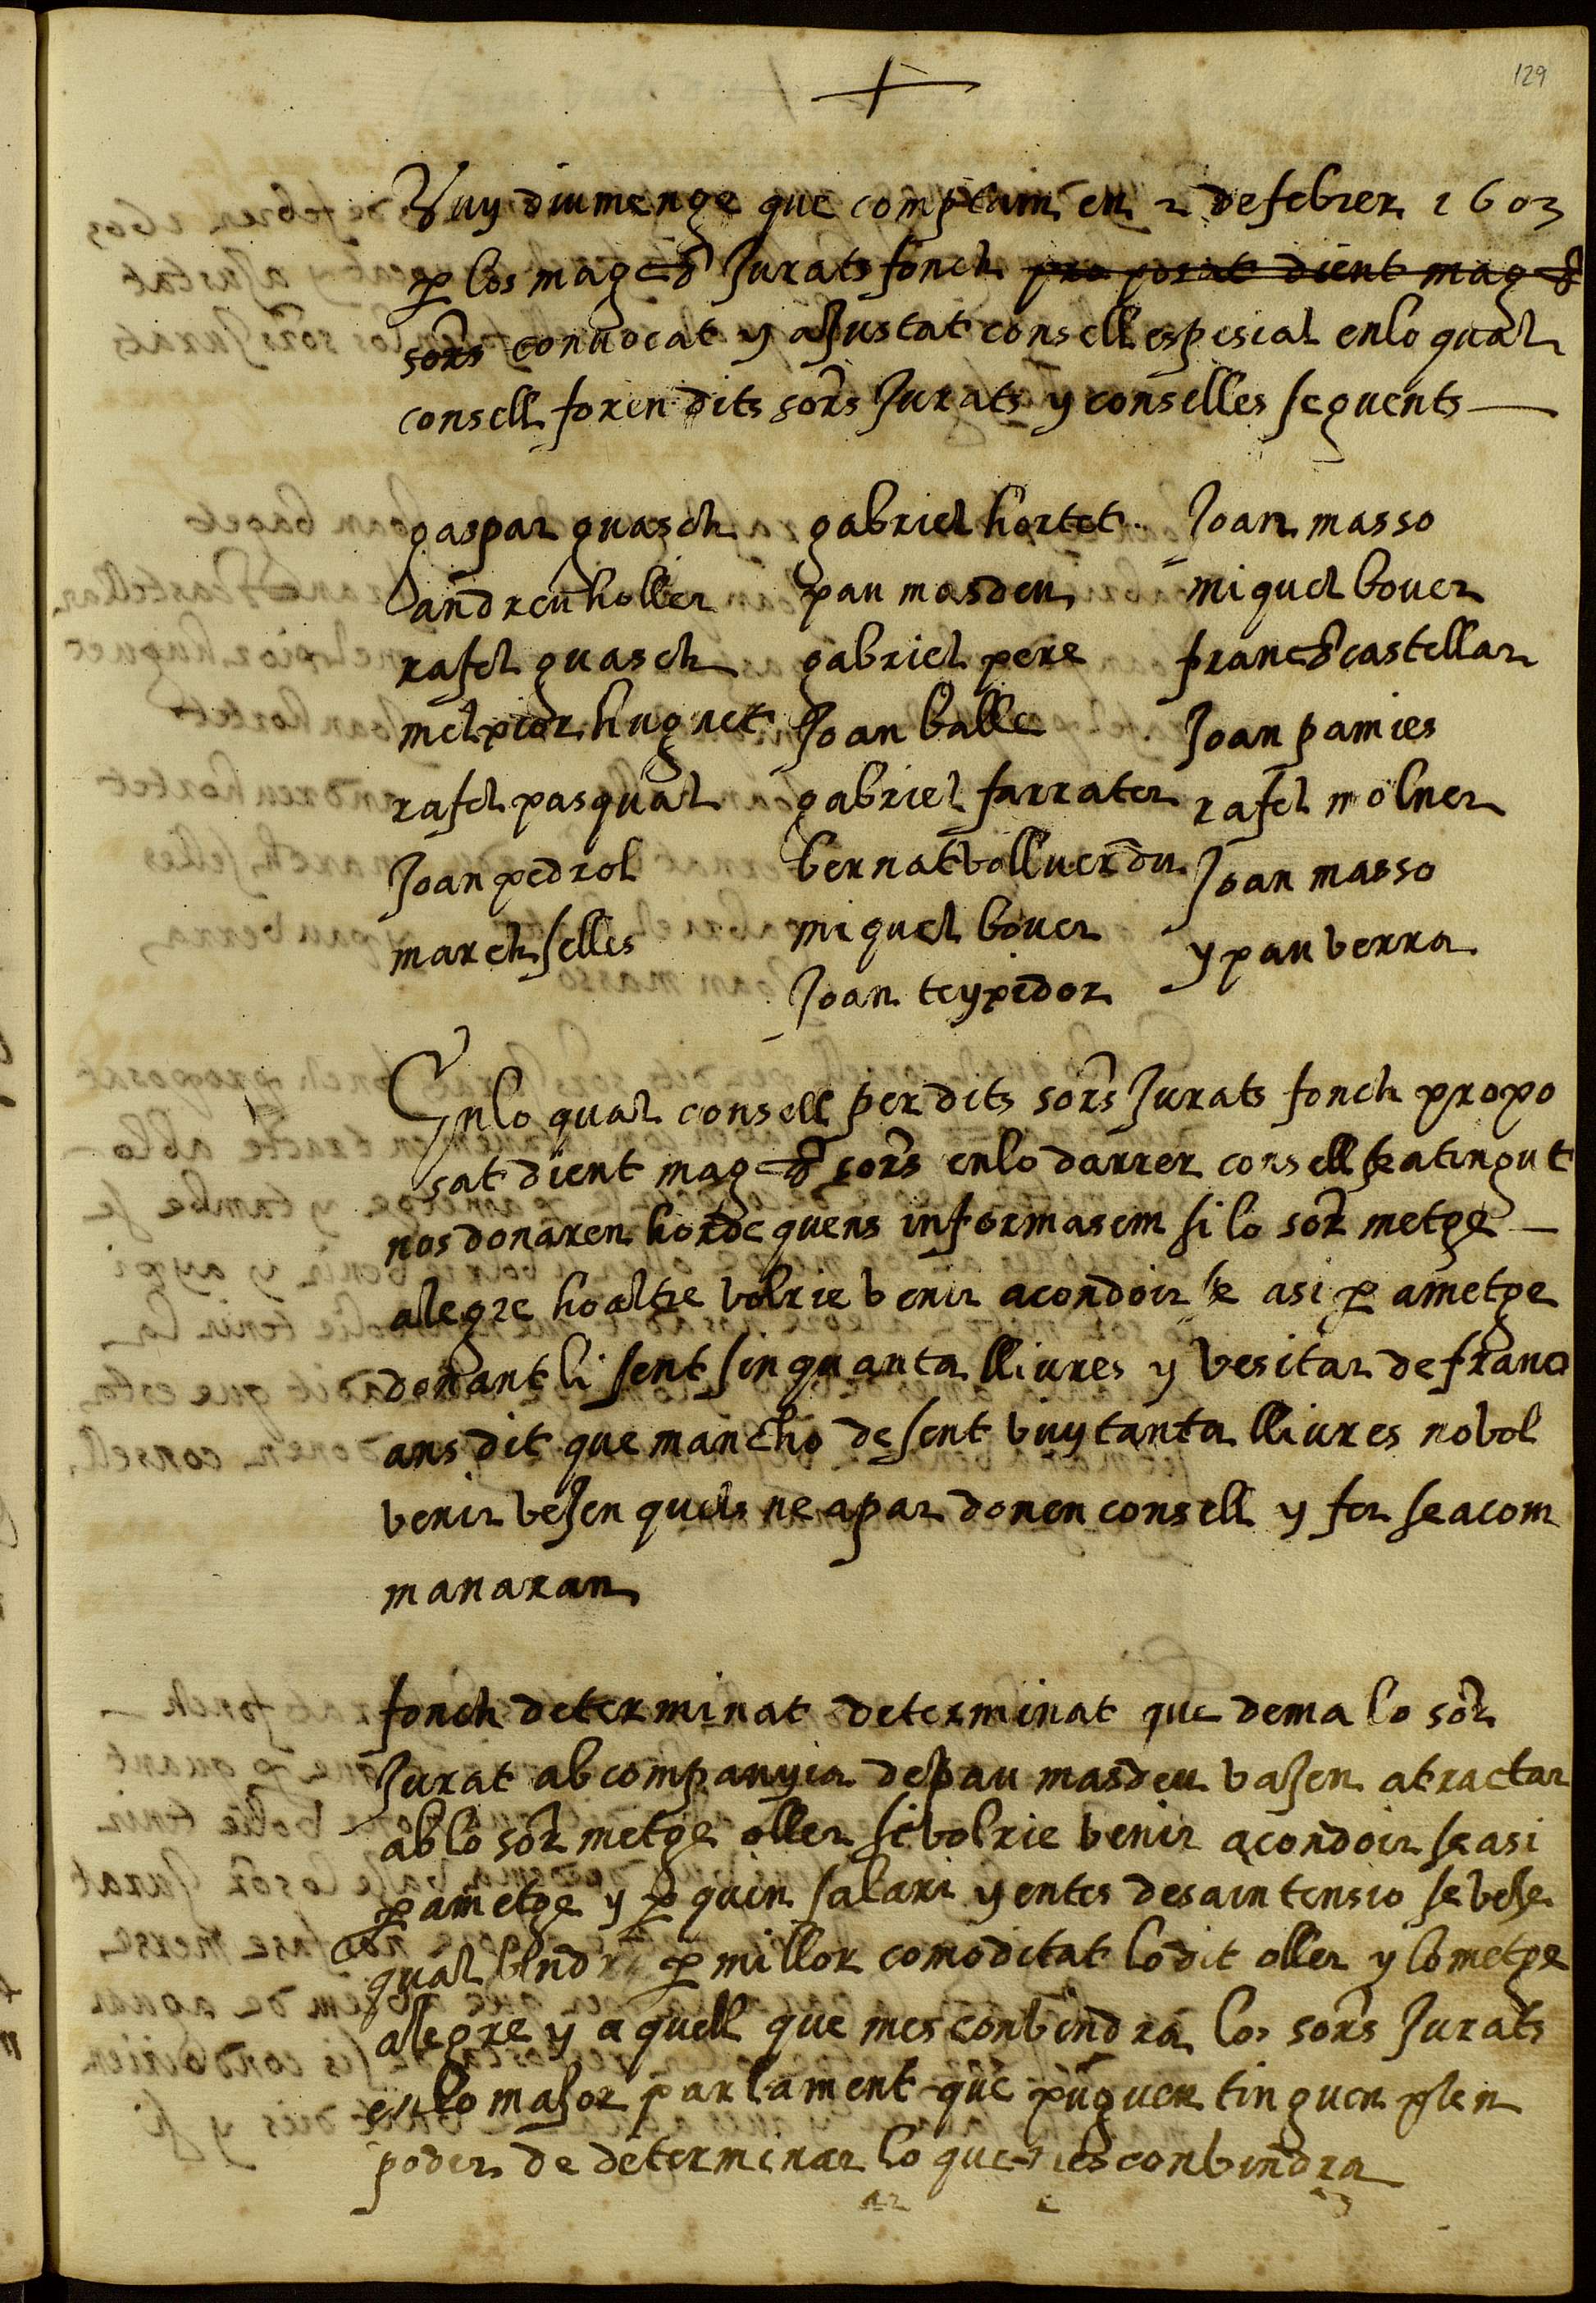 129
+
Vuy diumenge que comptam en 2 de febrer 1603
p los mag.chs Jurats fonch pro posat dient mag.chs
sors convocat y aJustat consell espesial enlo qual
consell foren dits sors Jurats y conselles seguents —
gaspar guasch gabriel hortet Joan masso
andreu holler pau masdeu miquel bover
rafel guasch gabriel pere franch castellar
melpior huguet Joan balle Joan pamies
rafel pasqual gabriel farrater rafel molner
Joan pedrol bernat vollverdu Joan masso
march selles miquel bover y pau verra
Joan teyxidor
Enlo qual consell per dits sors Jurats fonch propo
sat dient mag.chs sors enlo darrer consell se a tingut
nos donaren horde quens informasem si lo sor metge —
alegre ho altre volrie venir acondoir se asi p ametge
donant li sent sinquanta lliures y vesitar de franc
ans dit que mancho de sent vuytanta lliures no vol
venir veJen quels ne apar donen consell y fer se a com
manaran
fonch determinat determinat que dema lo sor
Jurat ab companyia de pau masdeu vaJen a tractar
ab lo sor metge oller si volrie venir acondoir se asi
p ametge y p quin salari y entes de sa intensio se veJe
qual vindra p millor comoditat lo dit oller y lo metge
allegre y a quell que mes convindra los sors Jurats
en lo maJor parlament que puguen tinguen plen
poder de determinar lo que mes convindra